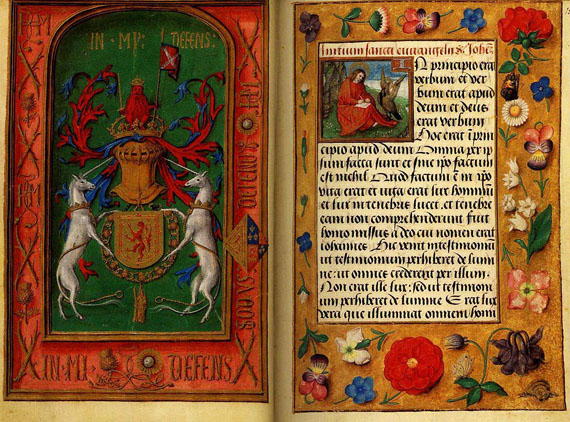 IN · MY · DEFENS ·
IN · MI · DEFENS
Initium sancti euvangelii s. Joha.
In principio erat
verbum et ver
bum erat apud
deum et deus
erat verbum
Hoc erat in prin
cipio apud deum Omnia per ip
sum facta sunt et sine ipo factum
est nichil Quod factum est in ipo
vita erat et vita erat lux hominu
et lux in tenebris lucet et tenebre
eam non comprehenderunt fuit
homo missus a deo cui nomen erat
iohannes Hic venit in testimoniu
ut testimonium perhiberet de lumi
ne ut omnes crederent per illum
Non erat ille lux sed ut testimoni
um perhiberet de lumine Erat lux
vera que illuminat omnem homi